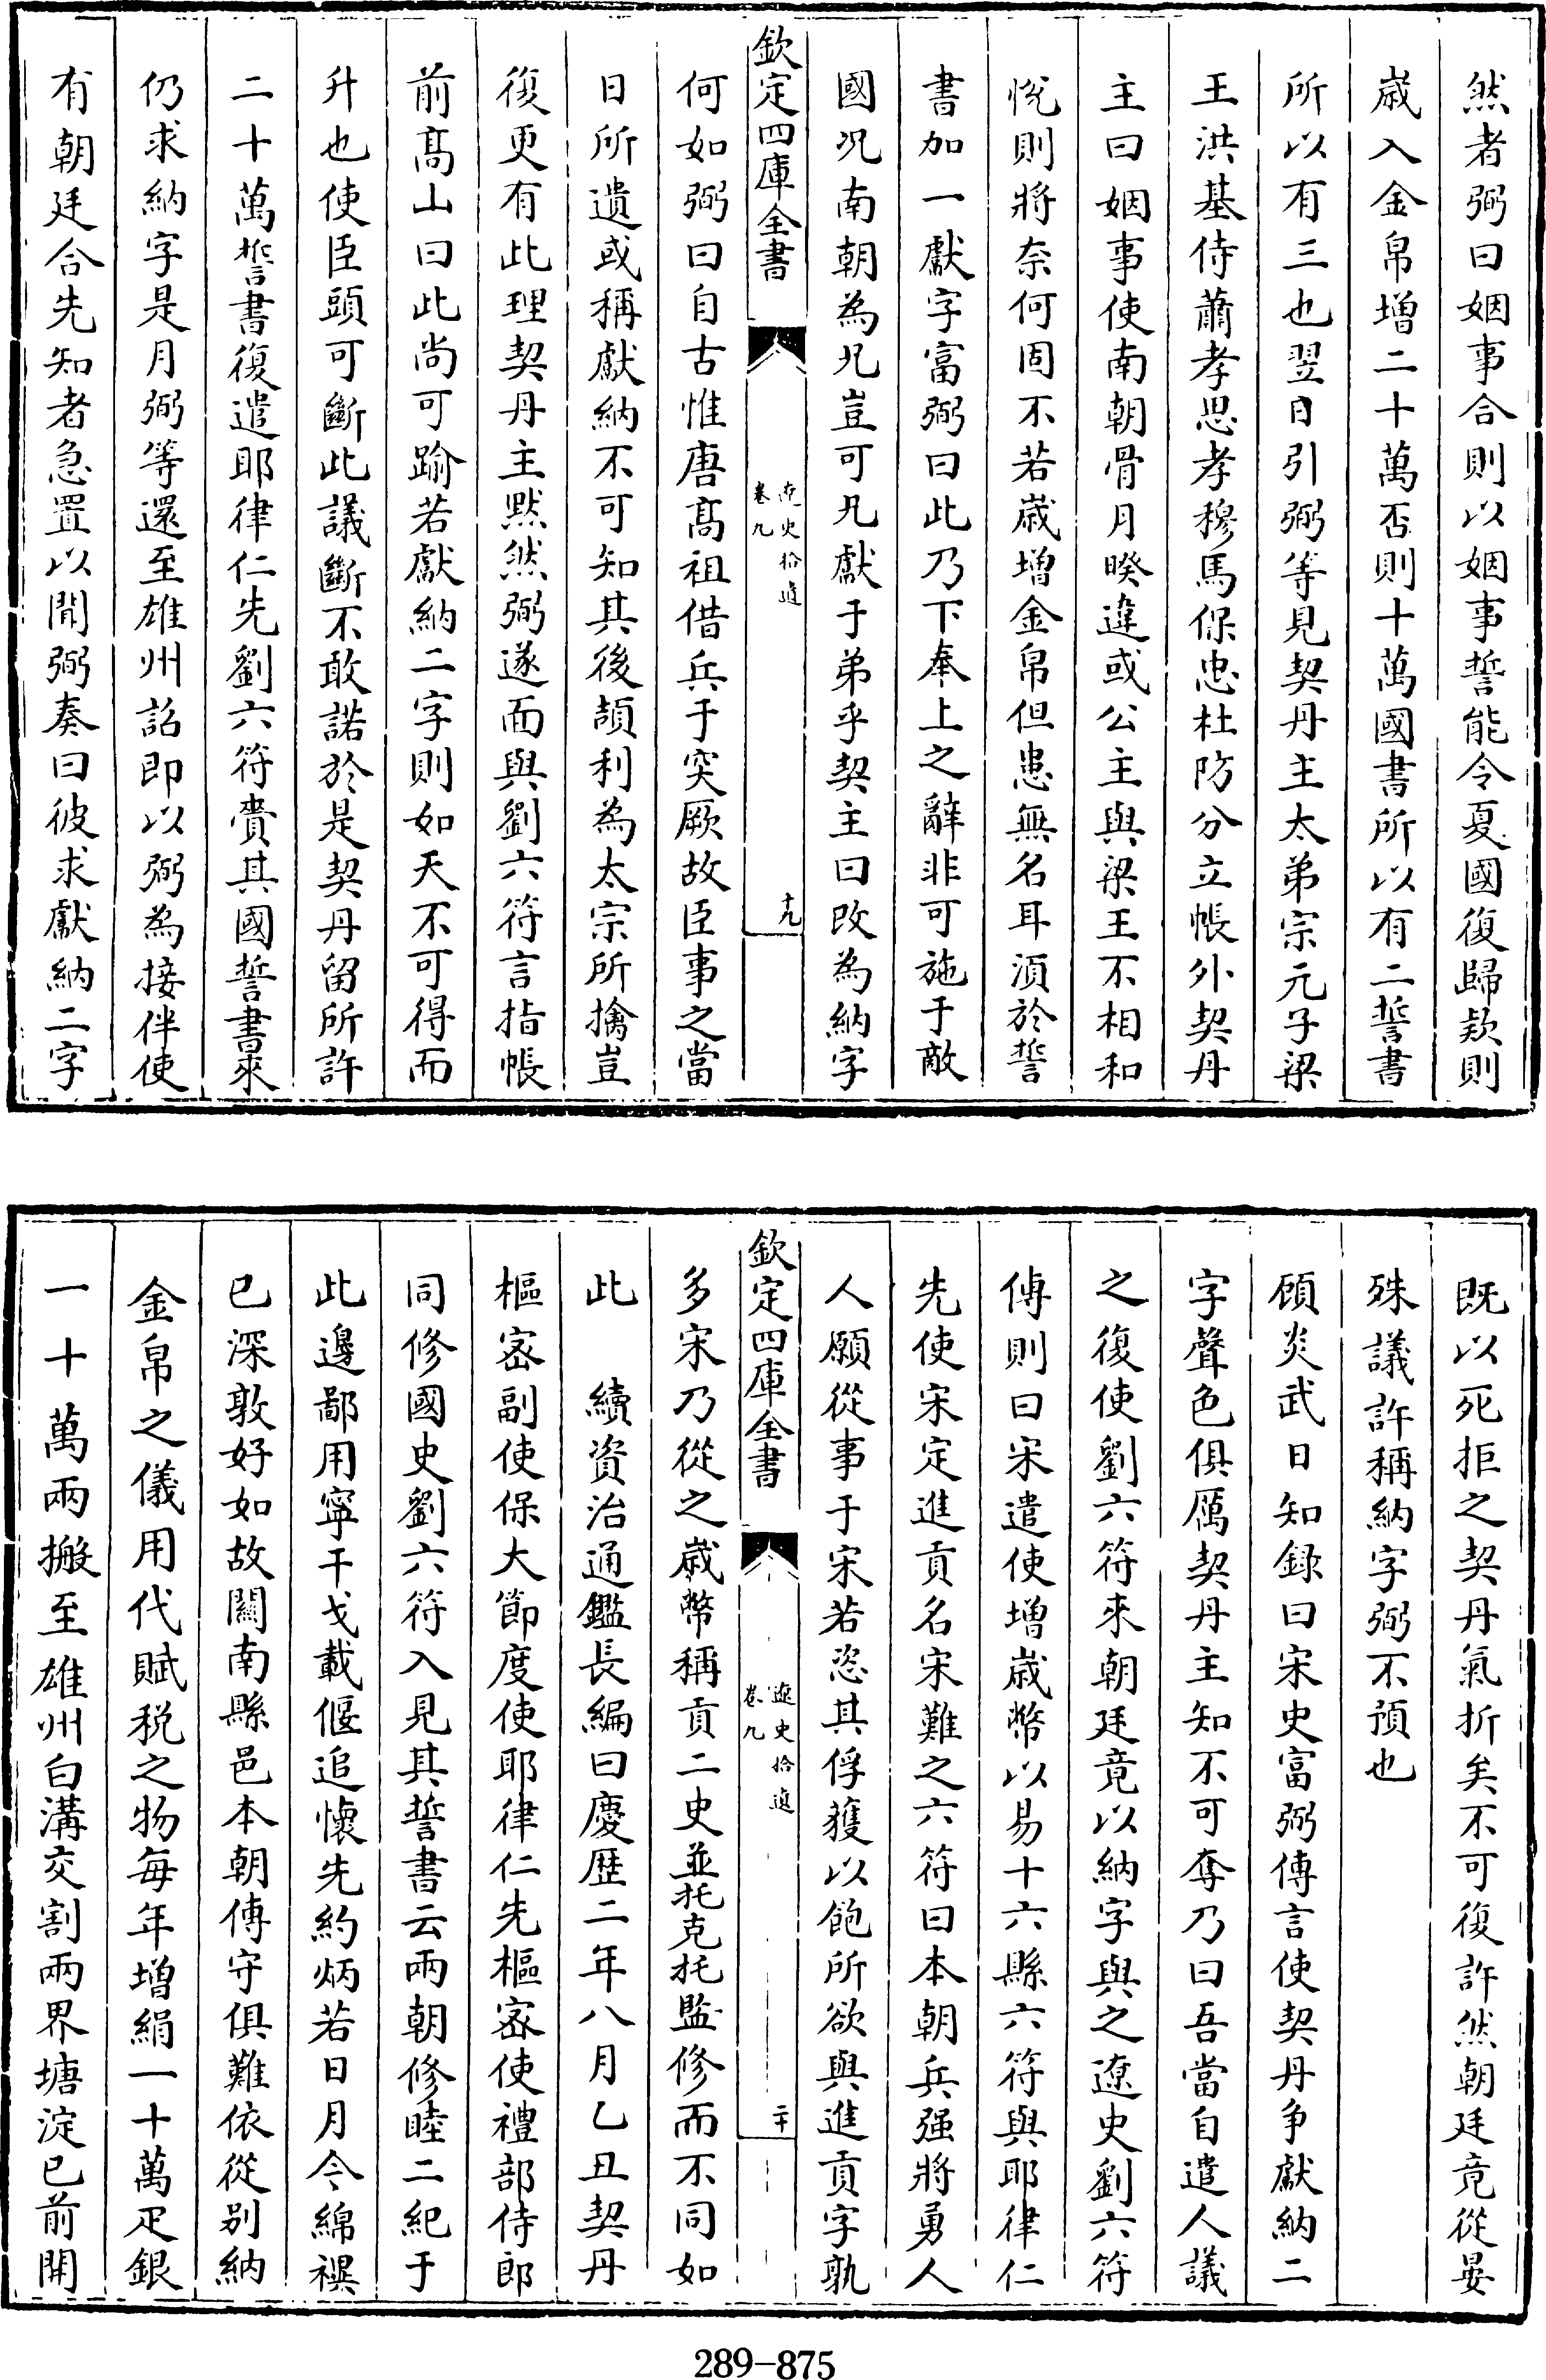 然者弼曰姻事合則以姻事誓能令夏國復歸欵則
嵗入金帛增二十萬否則十萬國書所以有二誓書
所以有三也翌日引弼等見契丹主太弟宗元子梁
王洪基侍蕭孝思孝穆馬保忠杜防分立帳外契丹
主曰姻事使南朝骨月暌違或公主與梁王不相和
悅則將奈何固不若嵗增金帛但患無名耳湏於誓
書加一獻字富弼曰此乃下奉上之辭非可施于敵
國况南朝為兄豈可兄獻于弟乎契主曰改為納字
欽定四庫全書
遼史拾遺
卷九
十九
何如弼曰自古惟唐髙祖借兵于突厥故臣事之當
日所遺或稱獻納不可知其後頡利為太宗所擒豈
復更有此理契丹主黙然弼遂面與劉六符言指帳
前髙山曰此尚可踰若獻納二字則如天不可得而
升也使臣頭可斷此議斷不敢諾於是契丹留所許
二十萬誓書復遣耶律仁先劉六符賫其國誓書來
仍求納字是月弼等還至雄州詔即以弼為接伴使
有朝廷合先知者急置以聞弼奏曰彼求獻納二字
既以死拒之契丹氣折矣不可復許然朝廷竟從晏
殊議許稱納字弼不預也
顧炎武日知録曰宋史富弼傳言使契丹争獻納二
字聲色俱厲契丹主知不可奪乃曰吾當自遣人議
之復使劉六符來朝廷竟以納字與之遼史劉六符
傳則曰宋遣使增嵗幣以易十六縣六符與耶律仁
先使宋定進貢名宋難之六符曰本朝兵强將勇人
人願從事于宋若恣其俘獲以飽所欲與進貢字孰
欽定四庫全書
遼史拾遺
卷九
二十
多宋乃從之嵗幣稱貢二史並托克托監修而不同如
此
續資治通鑑長編曰慶歴二年八月乙丑契丹
樞宻副使保大節度使耶律仁先樞宻使禮部侍郎
同修國史劉六符入見其誓書云兩朝修睦二紀于
此邊鄙用寧干戈載偃追懷先約炳若日月今綿禩
已深敦好如故闗南縣邑本朝傳守俱難依從别納
金帛之儀用代賦税之物每年增絹一十萬疋銀
一十萬兩搬至雄州白溝交割兩界塘淀已前開
289-875